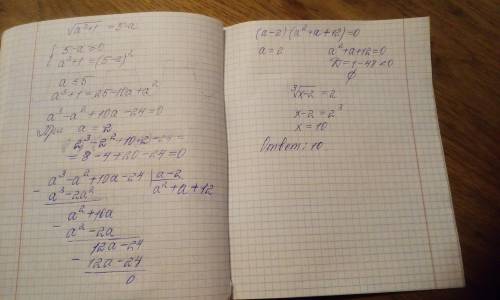 √a³+1 = 5-a
{ 5-a ≥ 0
a³+1 = (5-a)²
a ≤ 5
a³+1 = 25-10a+a²
a³-a²+10a-24=0
При a=2
2³-2²+10·2-24=
=8-4+20-24=0
a³-a²+10a-24 | a-2
a³-2a² a²+a+12
a²+10a
a²-2a
12a-24
12a-24
0
(a-2)(a²+a+12)=0
a=2 a²+a+12=0
D=1-48<0
∅
∛x-2 = 2
x-2 = 2³
x = 10
Ответ: 10.